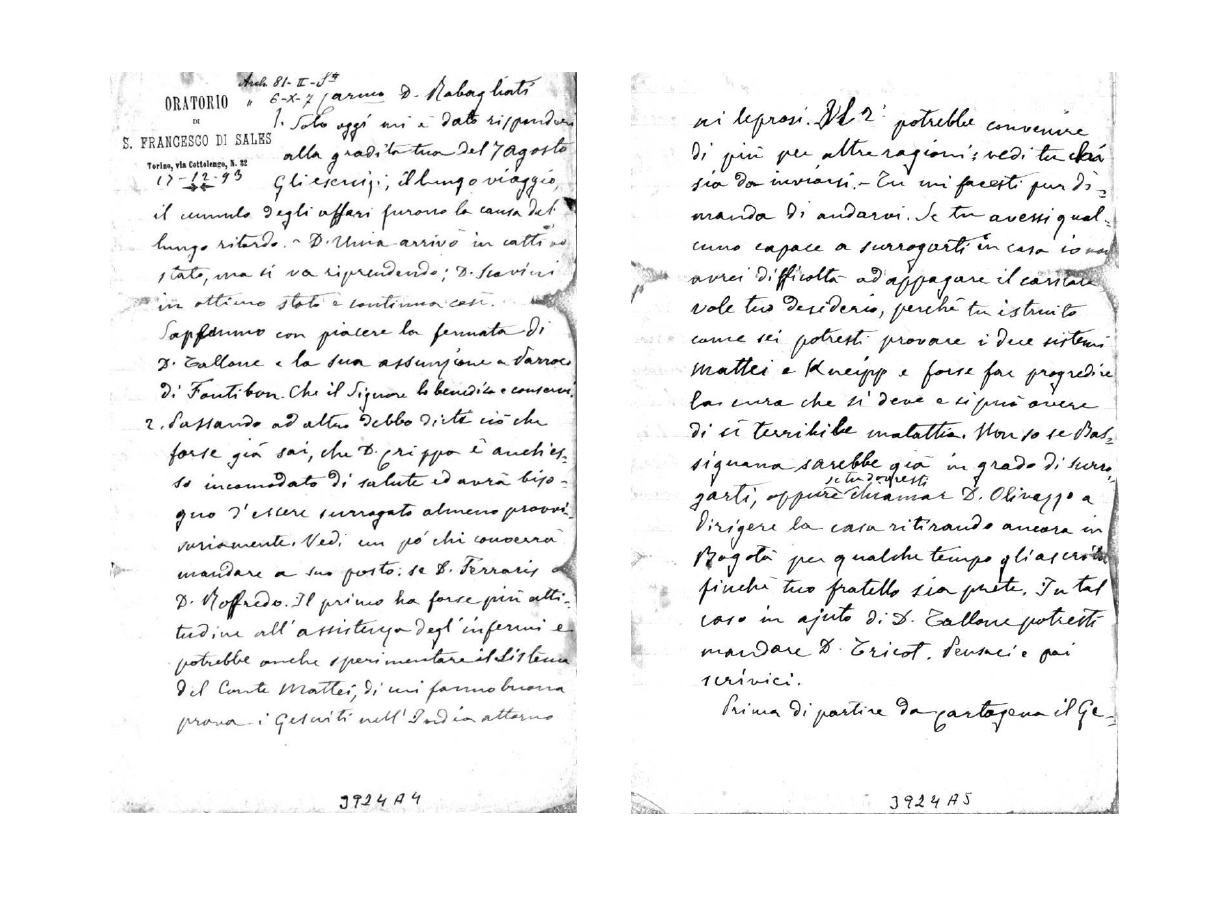 Arch. 81-II-S^a
" 6-X-7
ORATORIO
DI
S. FRANCESCO DI SALES
Torino, via Cottolengo, N. 32
17-12-93
Car.mo D. Rabagliati
1. Solo oggi mi è dato rispondere
alla gradita tua del 7 agosto
Gli esercizi, il lungo viaggio,
il cumulo degli affari furono la causa del
lungo ritardo. - D. Unia arrivò in cattivo
stato, ma si va riprendendo; D. Scavini
in ottimo stato e continua così.
Sapemmo con piacere la fermata di
D. Tallone e la sua assunzione a Parroco
di Fontibon. Che il Signore lo benedica e conservi.
2. Passando ad altro debbo dirti ciò che
forse già sai, che D. Crippa è anch'es=
so incomodato di salute ed avrà biso-
gno d'essere surrogato almeno provvi-
soriamente. Vedi un pó chi conoscerà
mandare a suo posto: se D. Ferraris o
D. Roffredo. Il primo ha forse più atti-
tudine all'assistenza degl'infermi e
potrebbe anche sperimentare il Sistema
del Conte Mattei, di cui fanno buona
prova i Gesuiti nell'India attorno
3924 A4
ai leprosi. Il 2° potrebbe convenire
di più per altre ragioni; vedi tu chi
sia da inviarsi. - Tu mi facesti pur di=
manda di andarvi. Se tu avessi qual=
cuno capace a surrogarti in casa io non
avrei difficoltà ad appagare il carita
vole tuo desiderio, perchè tu istruito
come sei potresti provare i due sistemi
Mattei e Kneipp e forse far progredire
la cura che si deve e si può avere
di sì terribile malattia. Non so se Bas=
signana sarebbe già in grado di surro=
se tu dovresti
garti, oppure chiamar D. Olivazzo a
dirigere la casa ritirando ancora in
Bogotà per qualche tempo gli ascritti
finchè tuo fratello sia prete. In tal
caso in ajuto di D. Tallone potresti
mandare D. Tricot. Pensaci e poi
scrivici.
Prima di partire da Cartagena il Ge=
3924 A5